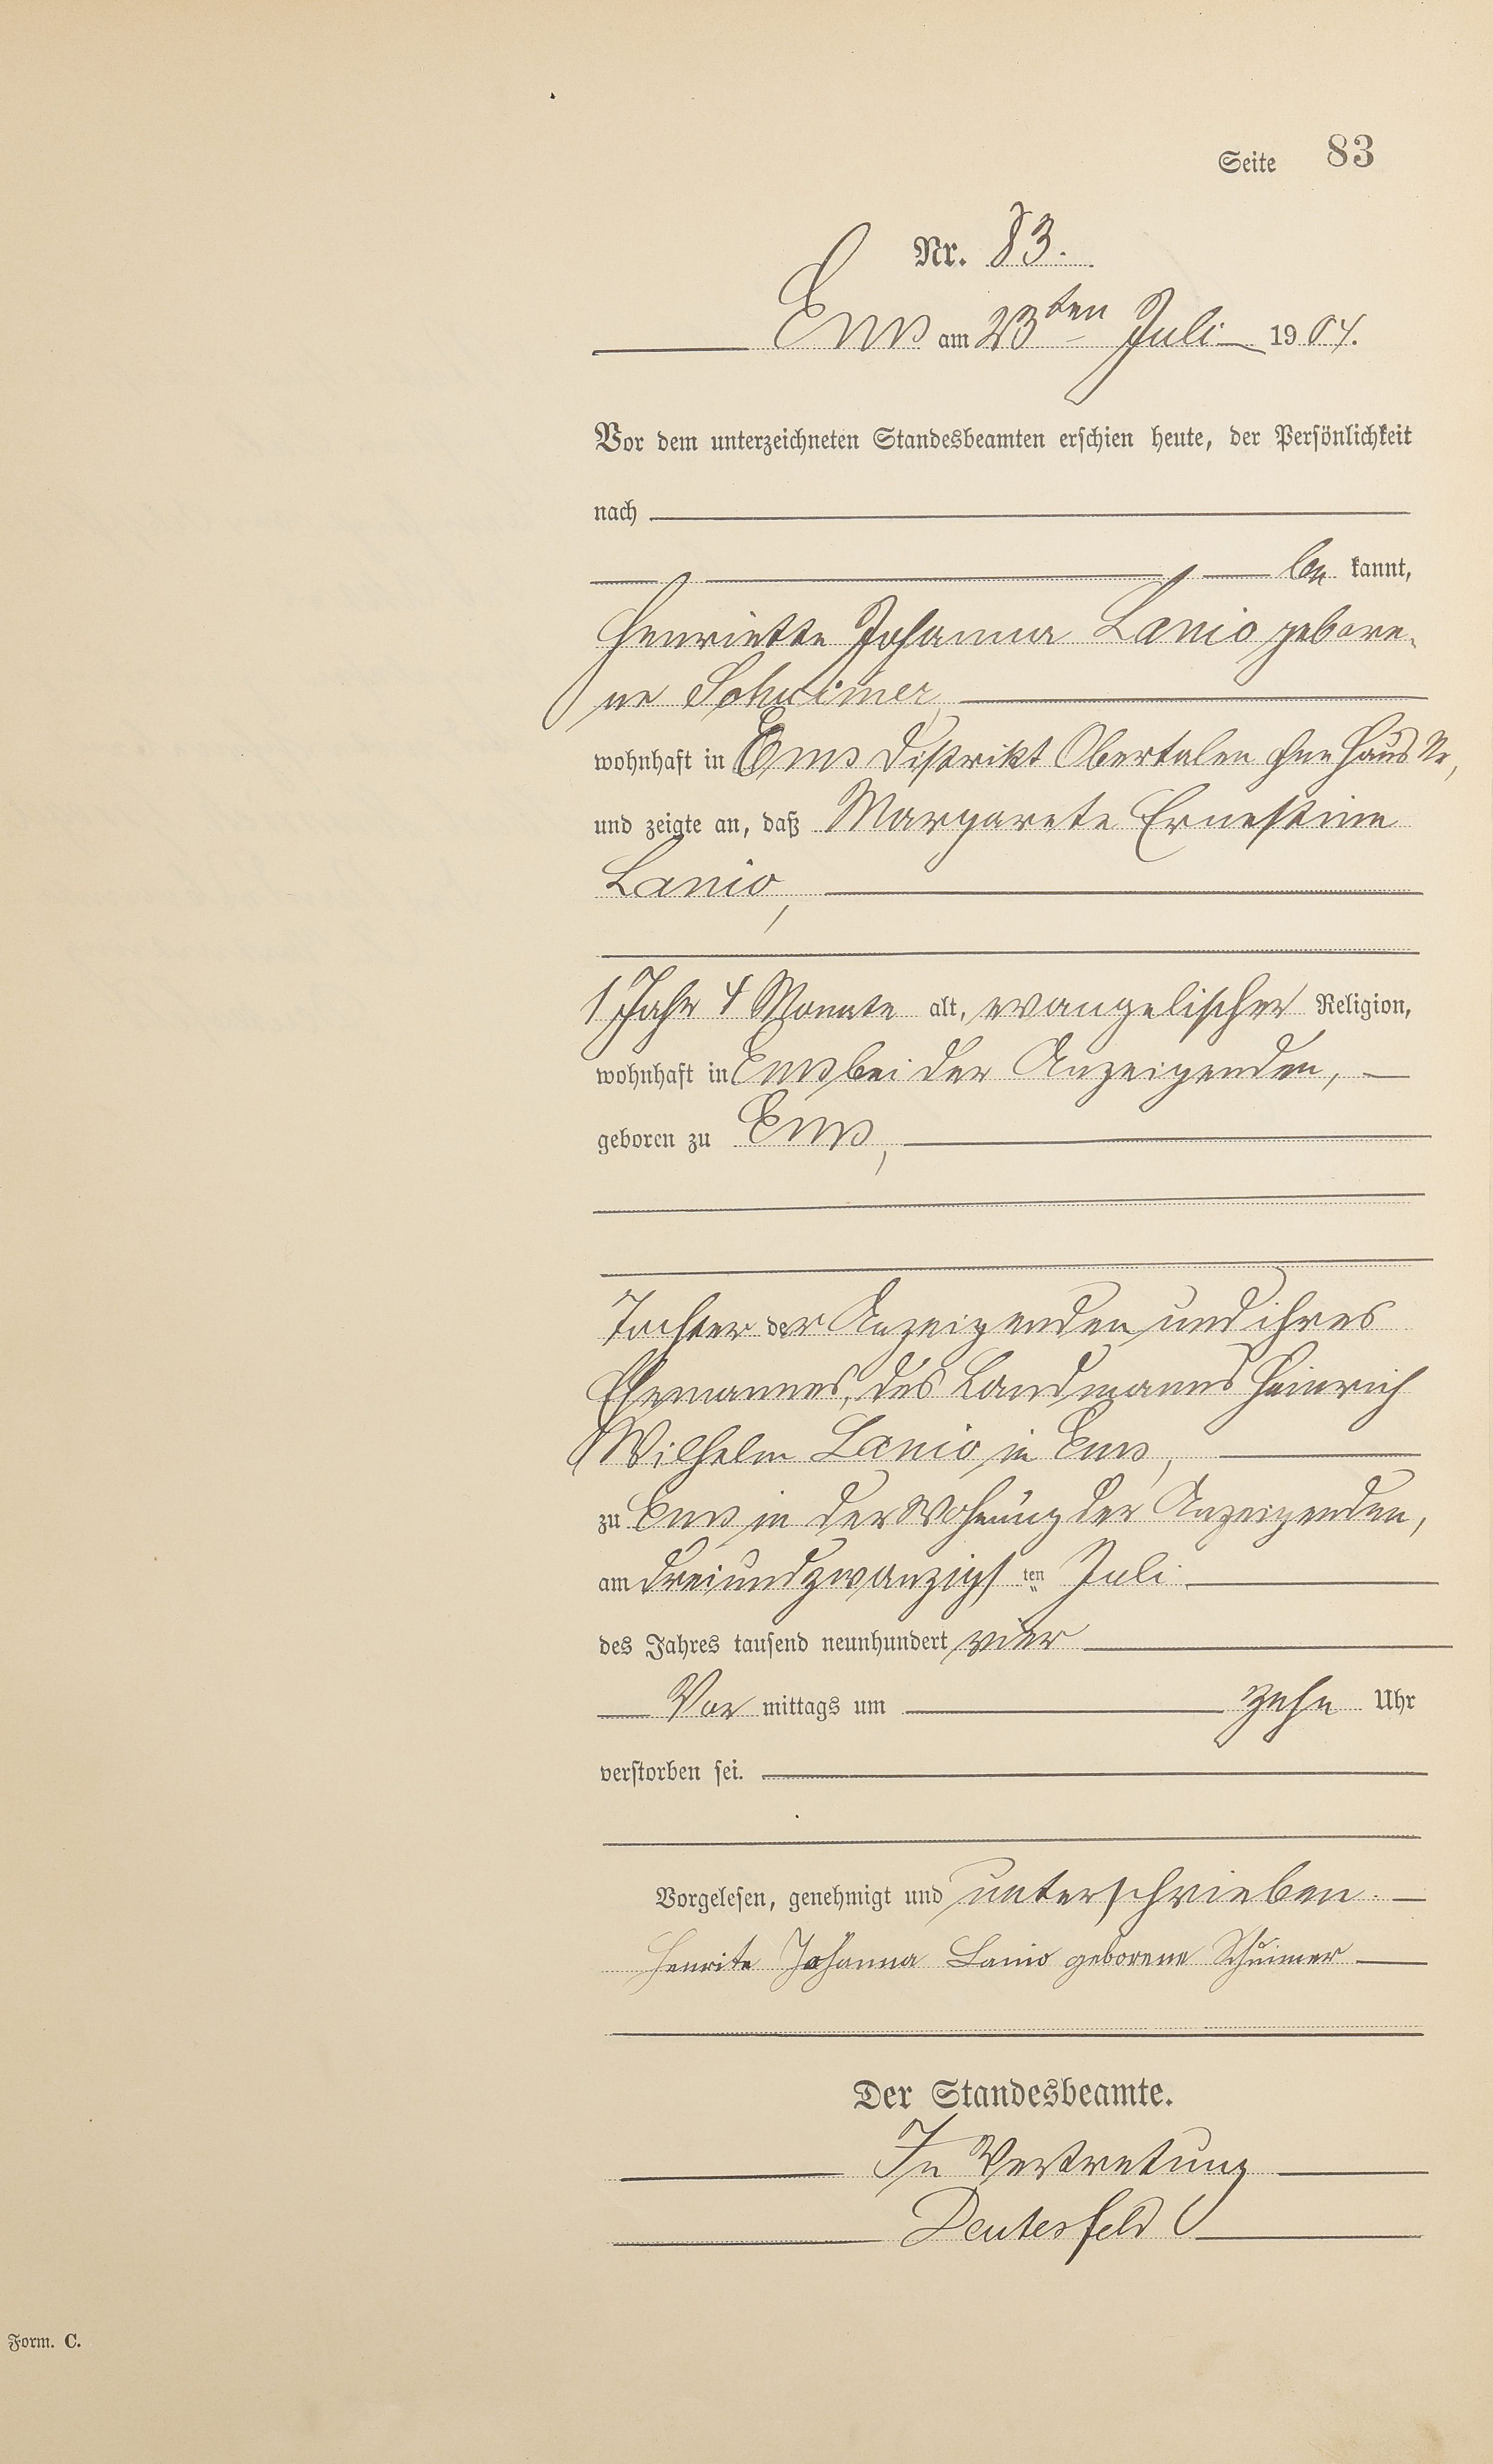 Seite 83
Nr. 83.
Ems am 23ten Juli 1904.
Vor dem unterzeichneten Standesbeamten erschien heute, der Persönlichkeit
nach
be kannt,
Henriette Johanna Lanio gebore-
ne Schuimer,
wohnhaft in Ems Distrikt Obertalen ohne Haus Nr,
und zeigte an, daß Margarete Ernestine
Lanio,
1 Jahr 4 Monate alt, evangelischer Religion,
wohnhaft in Ems bei der Anzeigenden,
geboren zu Ems,
Tochter der Anzeigenden und ihres
Ehemannes, des Landmanns Heinrich
Wilhelm Lanio in Ems,
zu Ems in der Wohnung der Anzeigenden,
am dreiundzwanzigs ten Juli
des Jahres tausend neunhundert vier
Vor mittags um zehn Uhr
verstorben sei.
Vorgelesen, genehmigt und unterschrieben.
Henrite Johanna Lanio geborene Schuimer
Der Standesbeamte.
In Vertretung
Deutesfeld
Form. C.